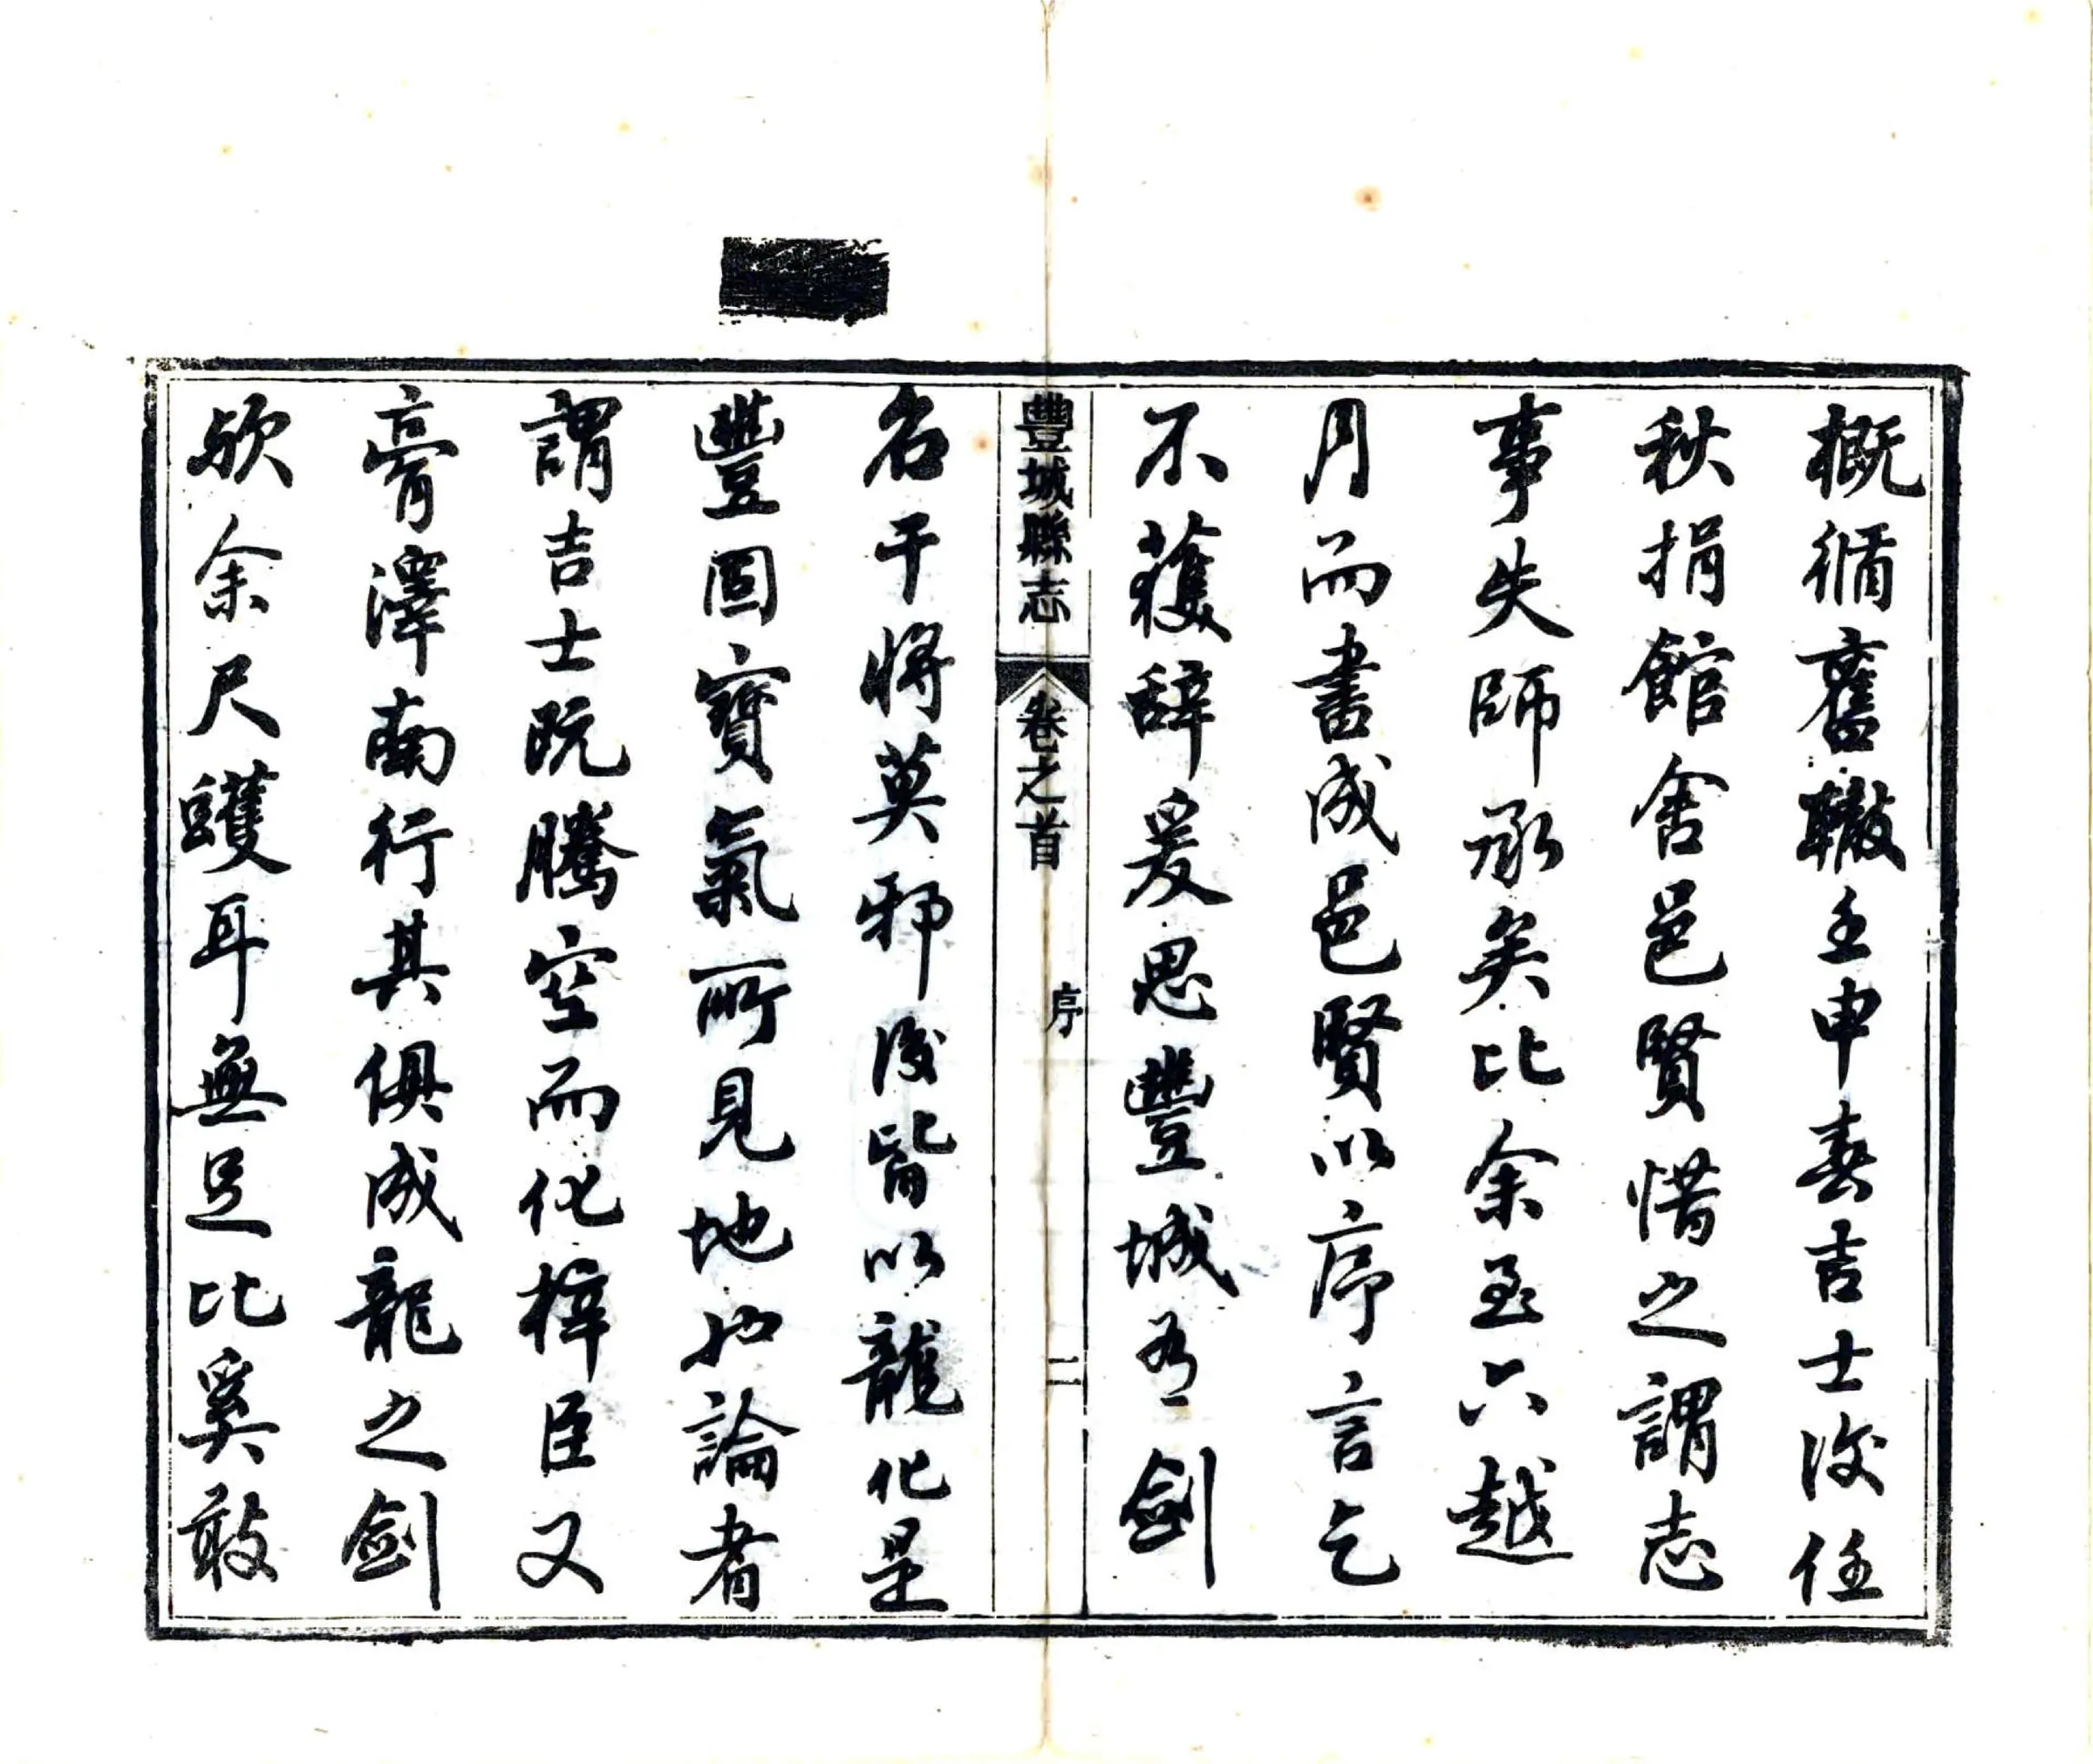 概循舊轍壬申春吉士復任
秋捐館舍邑賢惜之謂志
事失師承矣比余至六越
月而書成邑賢以序言乞
不獲辭爰思豐城有二劍
豐城縣志 卷之首 序 二
名干將莫邪後皆以龍化是
豐固寶氣所見地也論者
謂吉士既騰空而化梓臣又
膏澤南行其俱成龍之劍
歟余尺蠖耳無足比奚敢